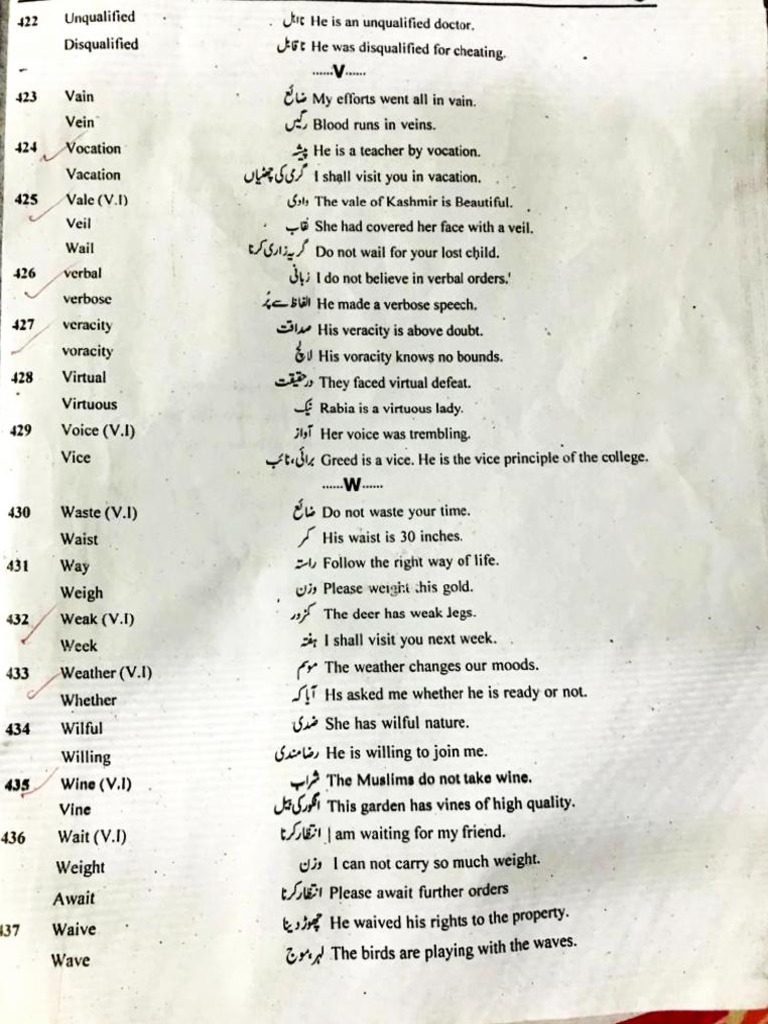 422 Unqualified نااہل He is an unqualified doctor.
Disqualified ناقابل He was disqualified for cheating.
......V......
423 Vain ضائع My efforts went all in vain.
Vein رگیں Blood runs in veins.
424 Vocation پیشہ He is a teacher by vocation.
Vacation گرمی کی چھٹیاں I shall visit you in vacation.
425 Vale (V.I) وادی The vale of Kashmir is Beautiful.
Veil نقاب She had covered her face with a veil.
Wail گریہ زاری کرنا Do not wail for your lost child.
426 verbal زبانی I do not believe in verbal orders.'
verbose الفاظ سے پُر He made a verbose speech.
427 veracity صداقت His veracity is above doubt.
voracity لالچ His voracity knows no bounds.
428 Virtual درحقیقت They faced virtual defeat.
Virtuous نیک Rabia is a virtuous lady.
429 Voice (V.I) آواز Her voice was trembling.
Vice برائی، نائب Greed is a vice. He is the vice principle of the college.
......W......
430 Waste (V.I) ضائع Do not waste your time.
Waist کمر His waist is 30 inches.
431 Way راستہ Follow the right way of life.
Weigh وزن Please weight this gold.
432 Weak (V.I) کمزور The deer has weak legs.
Week ہفتہ I shall visit you next week.
433 Weather (V.I) موسم The weather changes our moods.
Whether آیا کہ Hs asked me whether he is ready or not.
434 Wilful ضدی She has wilful nature.
Willing رضامندی He is willing to join me.
435 Wine (V.I) شراب The Muslims do not take wine.
Vine انگور کی بیل This garden has vines of high quality.
436 Wait (V.I) انتظار کرنا I am waiting for my friend.
Weight وزن I can not carry so much weight.
Await انتظار کرنا Please await further orders
437 Waive چھوڑ دینا He waived his rights to the property.
Wave لہر، موج The birds are playing with the waves.